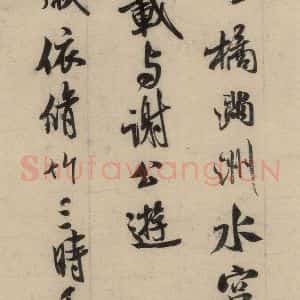 橘洲水
載与謝公遊
依脩竹三時
Shufawang.CN